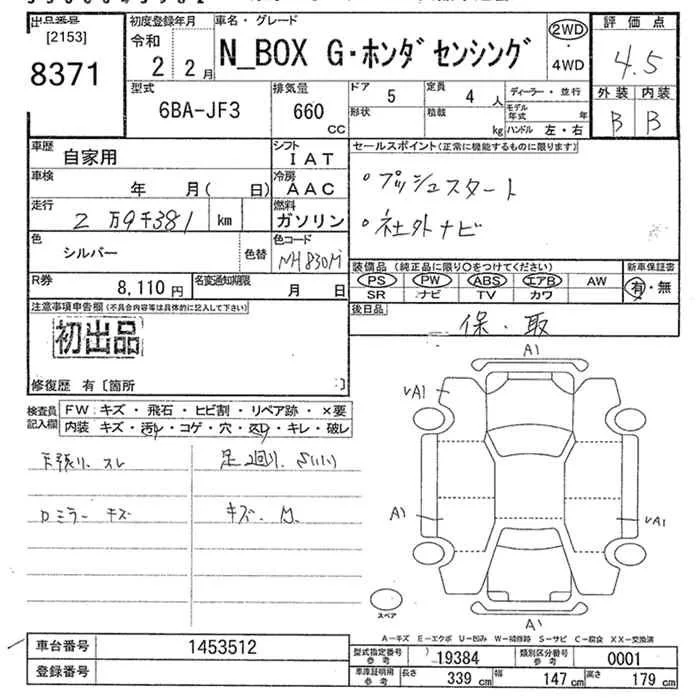 出品番号
[2153]
8371
初度登録年月
令和
2 2月
車名・グレード
N_BOX G・ホンダセンシング
2WD
・
4WD
評価点
4.5
外装 内装
B B
型式
6BA-JF3
排気量
660
CC
ドア
5
形状
定員
4人
積載
kg
ディーラー・並行
モデル年式 年
ハンドル 左・右
車歴
自家用
シフト
IAT
車検
年 月( 日)
冷房
AAC
走行
2万9千381 km
燃料
ガソリン
色
シルバー
色替
色コード
NH830M
R券
8,110円
名変通知期限
月 日
セールスポイント(正常に機能するものに限ります)
・プッシュスタート
・社外ナビ
装備品 (純正品に限り○をつけてください)
PS PW ABS エアB AW
SR ナビ TV カワ
新車保証書
有・無
後日品
保・取
注意事項申告欄(不具合内容等は具体的に記入して下さい)
初出品
修復歴 有〔箇所 :〕
検査員記入欄
FW:キズ・飛石・ヒビ割・リペア跡・×要
内装 キズ・汚レ・コゲ・穴・スレ・キレ・破レ
天張り、スレ
足2回り、Sハハ
ロミラー キズ
キズ、
A1
VA1
A1
VA1
A1
スペア
A-キズ E-エクボ U-凹み W-補修跡 S-サビ C-腐食 XX-交換済
車台番号
1453512
登録番号
型式指定番号
参考
19384
類別区分番号
参考
0001
車庫証明用
参考
長さ
339 cm
幅
147 cm
高さ
179 cm